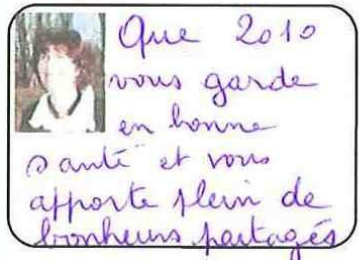 Que 2010
vous garde
en bonne
santé et vous
apporte plein de
bonheurs partagés